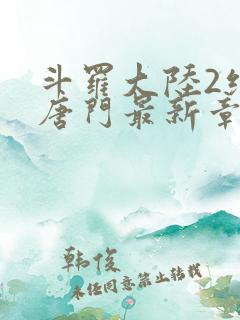 斗羅大陸2
唐門最新章
韩俊
未经同意禁止转载